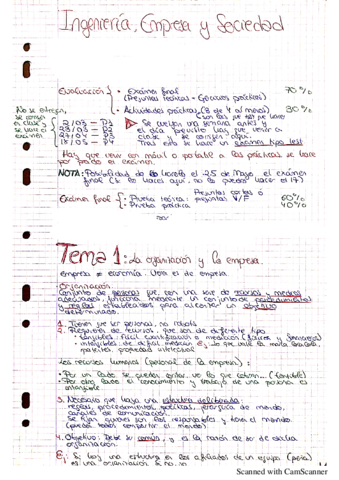 Ingeniería, Empresa y Sociedad
Evaluación • Examen final 70%
(Preguntas teóricas + casos prácticos)
• Actividades prácticas (3 de 4 al menos) 30%
No se entregan,
se corrige
en clase y
se hace el
examen
2/03 - P1
27/04 - P3
18/05 - P4
Se cuelgan una semana antes y
el día previsto hay que venir a
clase y se corrigen aquí.
Tras esto se hace un examen tipo test
Hay que venir con móvil o portátil a las prácticas se hace
por moodle el examen.
NOTA: Posibilidad de hacerlo el 25 de Mayo el examen
final (si lo haces aquí, no lo puedes hacer el 17)
Examen final • Prueba teórica: preguntas V/F 60%
Preguntas cortas ó
• Prueba práctica 40%
Tema 1: La organización y la empresa.
empresa ≠ economía. Uora el de empresa.
Organización
Conjunto de personas que con una serie de recursos y medios
adecuados, funciona mediante un conjunto de procedimientos
y reglas establecidas para alcanzar un objetivo
determinado.
1. Tienen que ser personas, no robots
2. Requieren de recursos, que son de diferente tipo
• tangibles: fácil cuantificación o medición (físicos y financieros)
• intangibles: de difícil medición Ej: lo que vale la marca
patentes, propiedad intelectual
Los recursos humanos (personal de la empresa):
• Por un lado se pueden contar, ver lo que cobran... (tangible)
• Por otro lado el conocimiento y trabajo de una persona es
intangible
3. Necesario que haya una estructura deliberada:
reglas, procedimientos, políticas, jerarquía de mando,
canales de comunicación.
Se fijan quienes son los responsables y tiene el mando
(pueda todos compartir el mando).
4. Objetivo: Debe ser común, y es la razón de ser de dicha
organización.
Ej: Si hay una estructura en los aficionados de un equipo (peña)
es una organización si no, no
Scanned with CamScanner